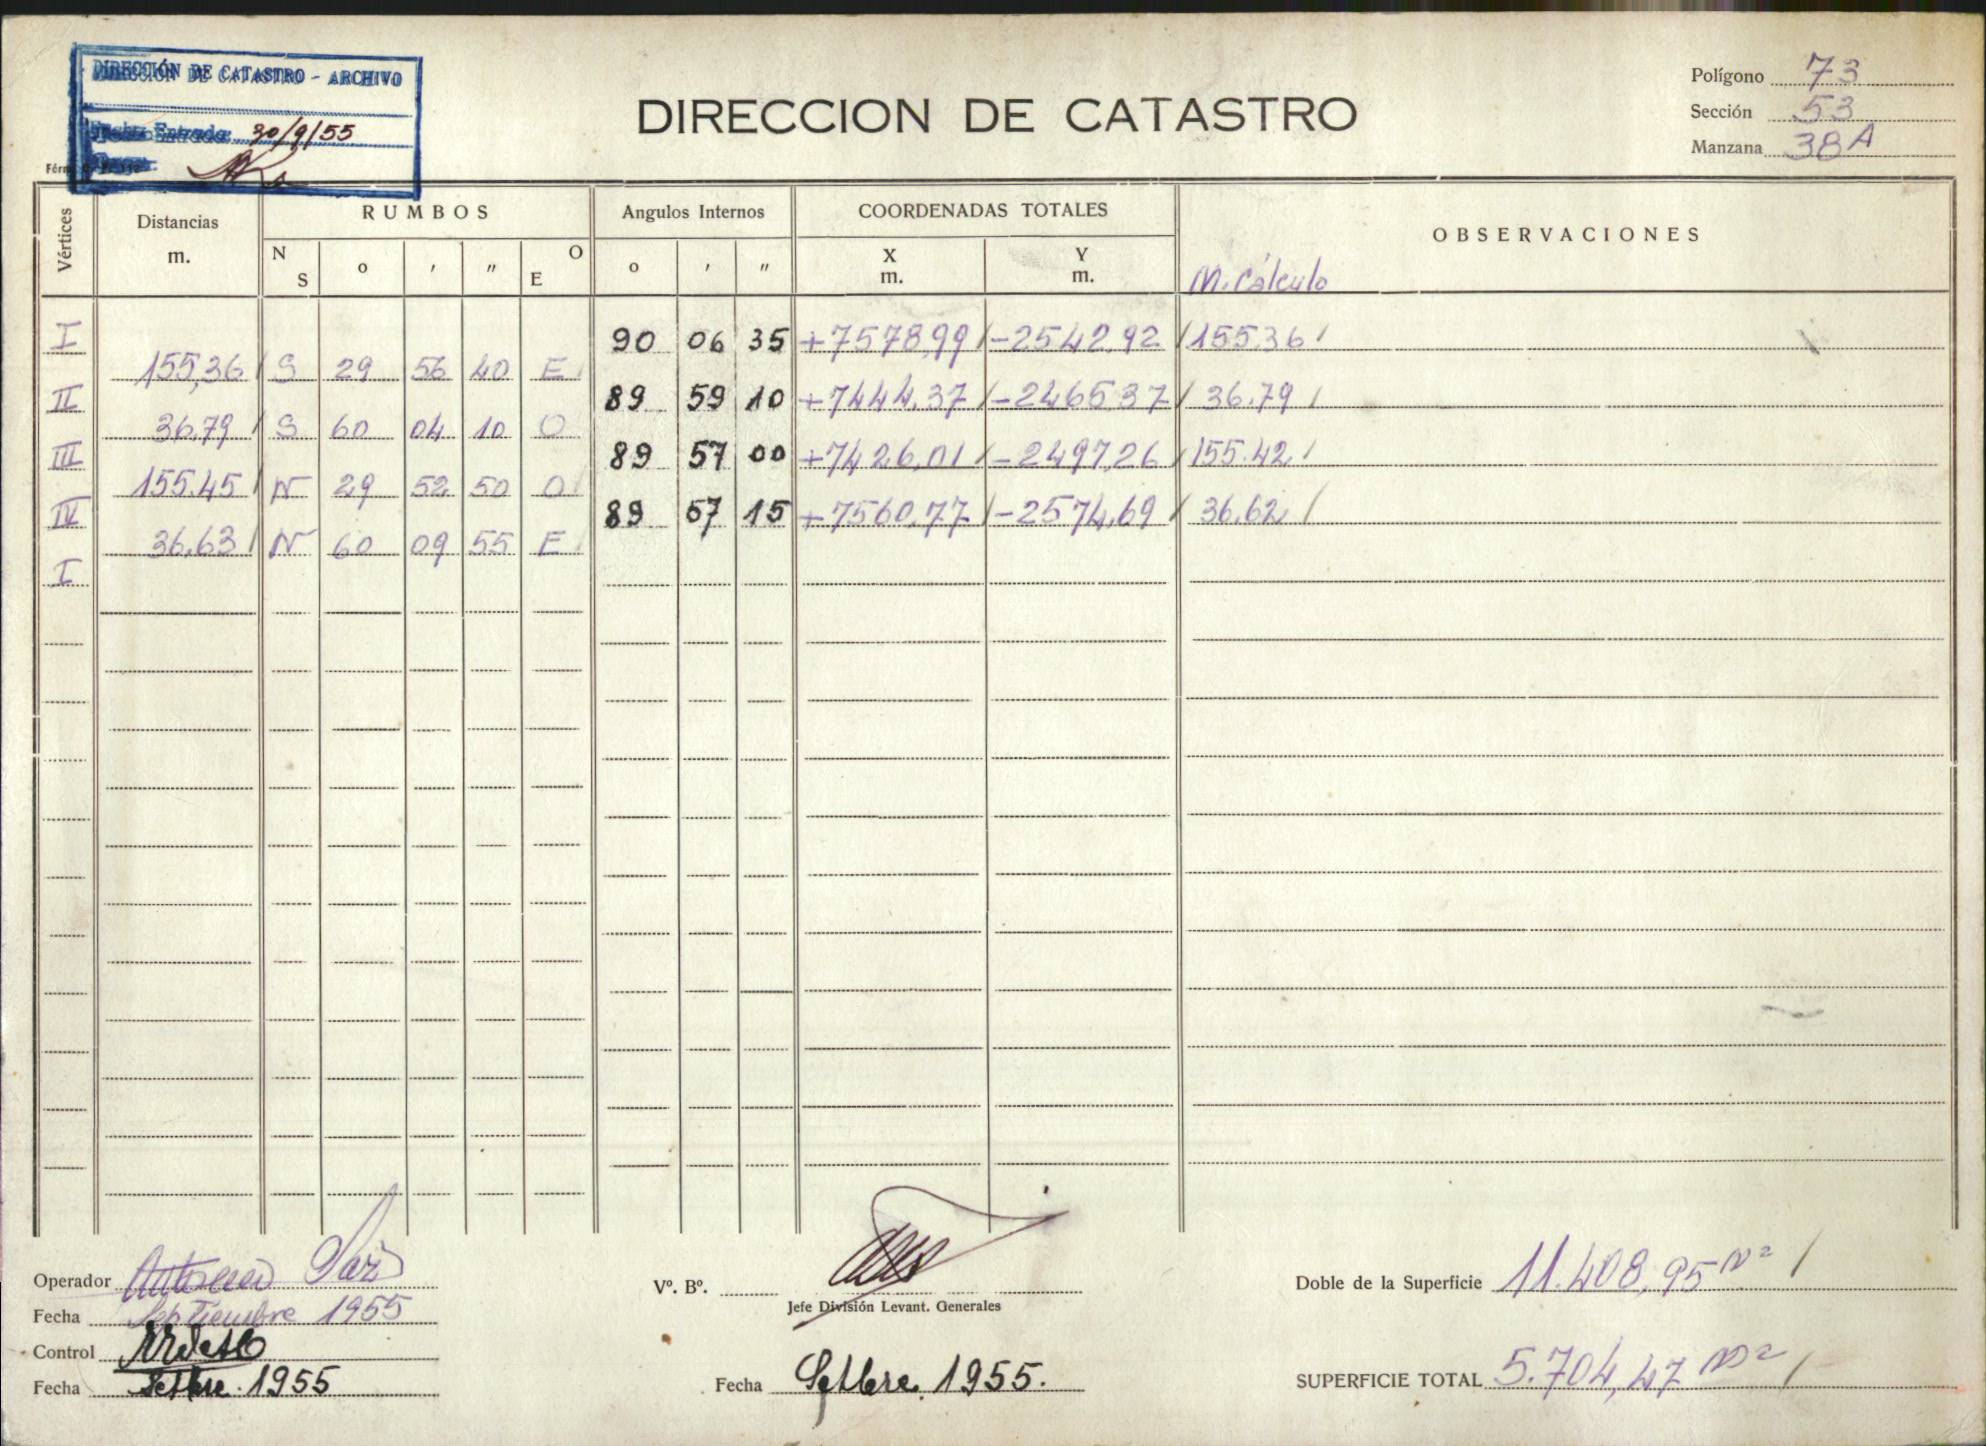 DIRECCIÓN DE CATASTRO - ARCHIVO
Entrada 30/9/55
DIRECCION DE CATASTRO
Polígono 73
Sección 53
Manzana 38A
Vértices
Distancias
m.
RUMBOS
N S o ' " E O
Angulos Internos
o ' "
COORDENADAS TOTALES
X
m.
Y
m.
OBSERVACIONES
M. Cálculo
I 90 06 35 +7578,99 -2542,92 155.36
155,36 S 29 56 40 E
II 89 59 10 +7444,37 -2465,37 36.79
36,79 S 60 04 10 O
III 89 57 00 +7426,01 -2497,26 155.42
155.45 N 29 52 50 O
IV 89 57 15 +7560,77 -2574,69 36,62
36,63 N 60 09 55 E
I
Operador
Fecha Septiembre 1955
Control
Fecha Setbre. 1955
Vº. Bº.
Jefe División Levant. Generales
Fecha Setbre. 1955.
Doble de la Superficie 11.408,95 m²
SUPERFICIE TOTAL 5.704,47 m²